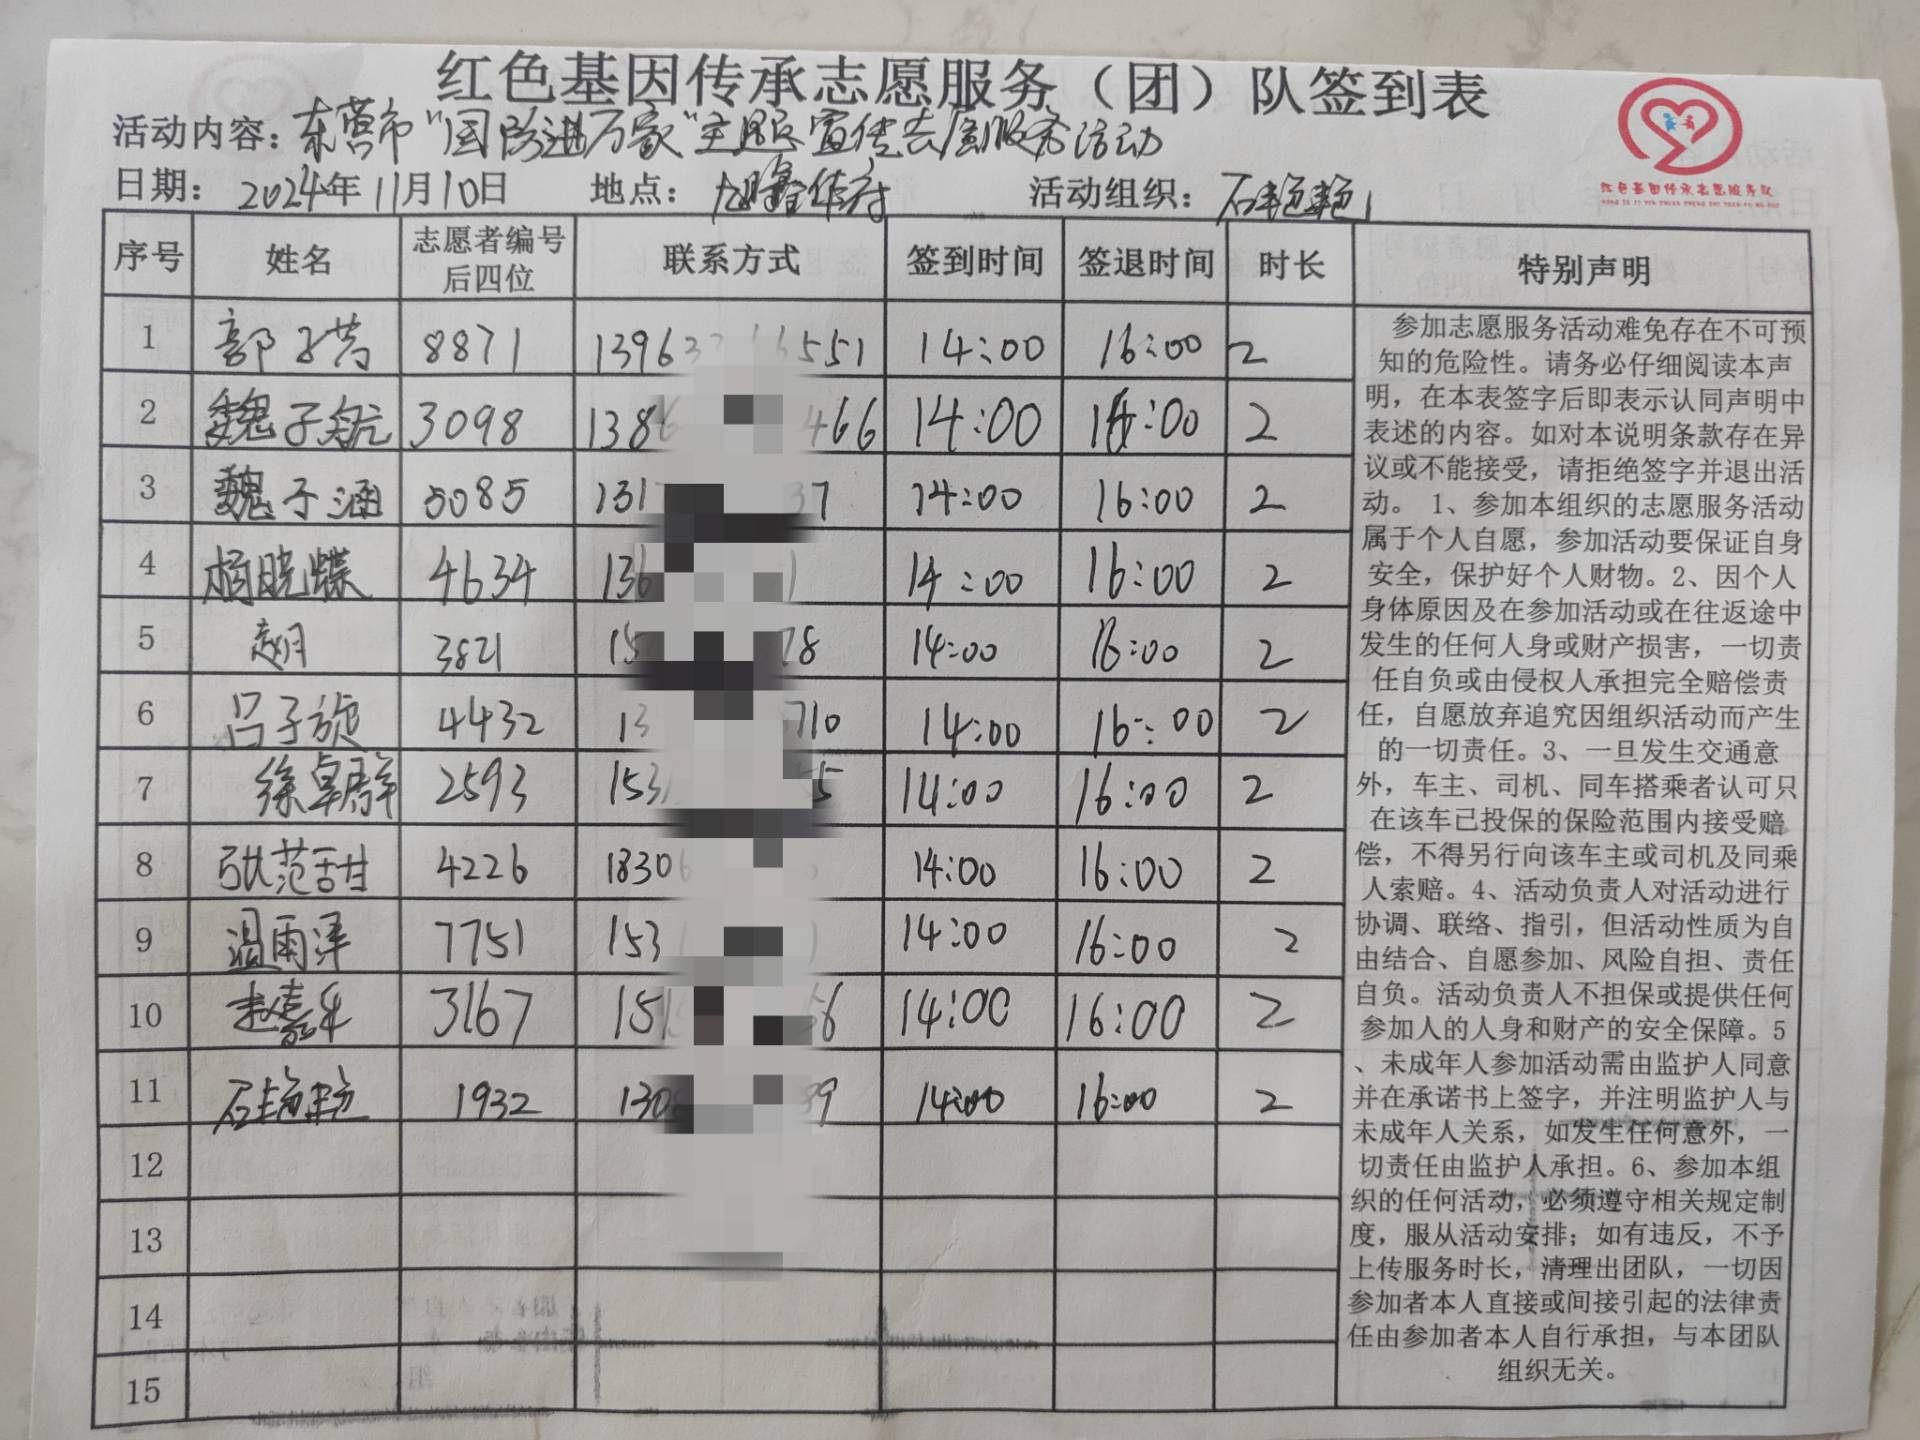 红色基因传承志愿服务（团）队签到表
活动内容：东营市"国防进万家"主题宣传志愿服务活动
日期：2024年11月10日 地点：旭隆华府 活动组织：石艳艳
红色基因传承志愿服务队
序号 姓名 志愿者编号后四位 联系方式 签到时间 签退时间 时长 特别声明
1 郭子菡 8871 13963 551 14:00 16:00 2
2 魏子航 3098 138 466 14:00 16:00 2
3 魏子涵 5085 131 37 14:00 16:00 2
4 杨晓蝶 4634 136 14:00 16:00 2
5 3821 15 78 14:00 16:00 2
6 吕子旋 4432 13 710 14:00 16:00 2
7 徐卓群 2593 153 5 14:00 16:00 2
8 张范甜 4226 1830 14:00 16:00 2
9 温雨泽 7751 153 14:00 16:00 2
10 赵嘉乐 3167 151 6 14:00 16:00 2
11 石艳艳 1932 130 89 14:00 16:00 2
12
13
14
15
参加志愿服务活动难免存在不可预
知的危险性。请务必仔细阅读本声
明，在本表签字后即表示认同声明中
表述的内容。如对本说明条款存在异
议或不能接受，请拒绝签字并退出活
动。 1、参加本组织的志愿服务活动
属于个人自愿，参加活动要保证自身
安全，保护好个人财物。2、因个人
身体原因及在参加活动或在往返途中
发生的任何人身或财产损害，一切责
任自负或由侵权人承担完全赔偿责
任，自愿放弃追究因组织活动而产生
的一切责任。3、一旦发生交通意
外，车主、司机、同车搭乘者认可只
在该车已投保的保险范围内接受赔
偿，不得另行向该车主或司机及同乘
人索赔。4、活动负责人对活动进行
协调、联络、指引，但活动性质为自
由结合、自愿参加、风险自担、责任
自负。活动负责人不担保或提供任何
参加人的人身和财产的安全保障。5
、未成年人参加活动需由监护人同意
并在承诺书上签字，并注明监护人与
未成年人关系，如发生任何意外，一
切责任由监护人承担。6、参加本组
织的任何活动，必须遵守相关规定制
度，服从活动安排；如有违反，不予
上传服务时长，清理出团队，一切因
参加者本人直接或间接引起的法律责
任由参加者本人自行承担，与本团队
组织无关。